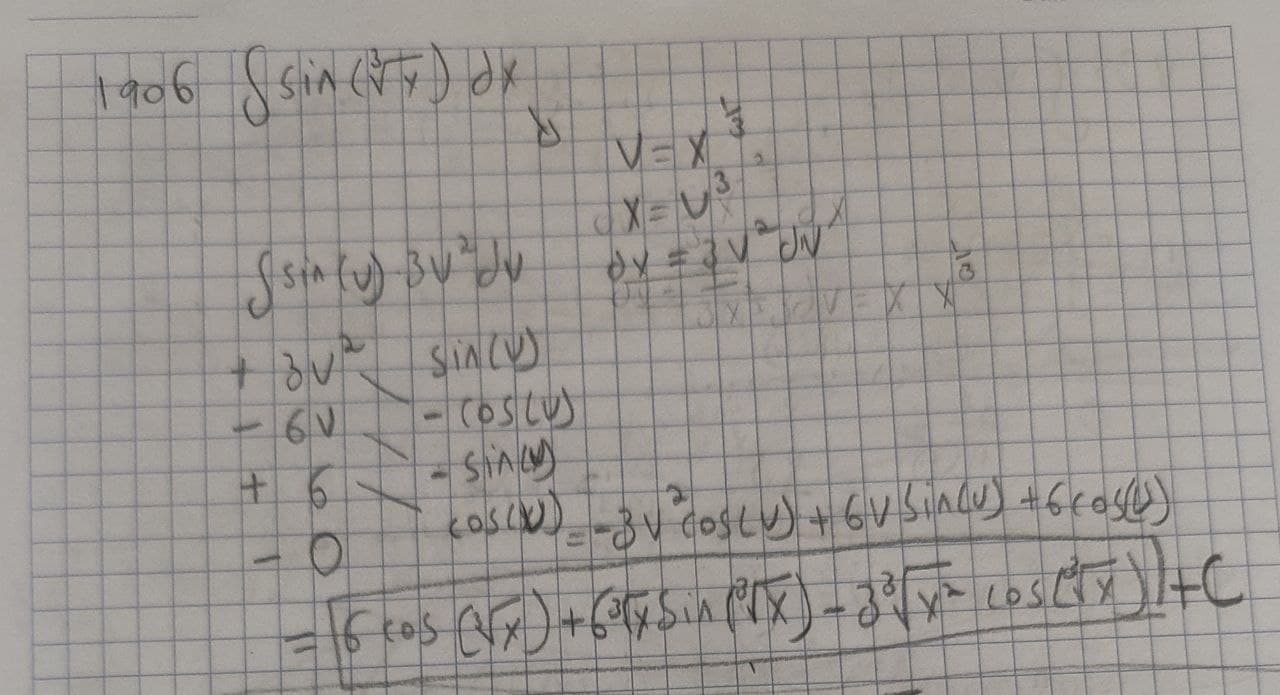 1906 ∫ sin(∛x) dx
v = x^⅓
x = v³
∫ sin(v) · 3v² dv dx = 3v² dv
x^⅓
+ 3v² sin(v)
- 6v - cos(v)
+ 6 - sin(v)
- 0 cos(v) = -3v² cos(v) + 6v sin(v) + 6 cos(v)
= 6 cos(∛x) + 6∛x sin(∛x) - 3∛x² cos(∛x) + C